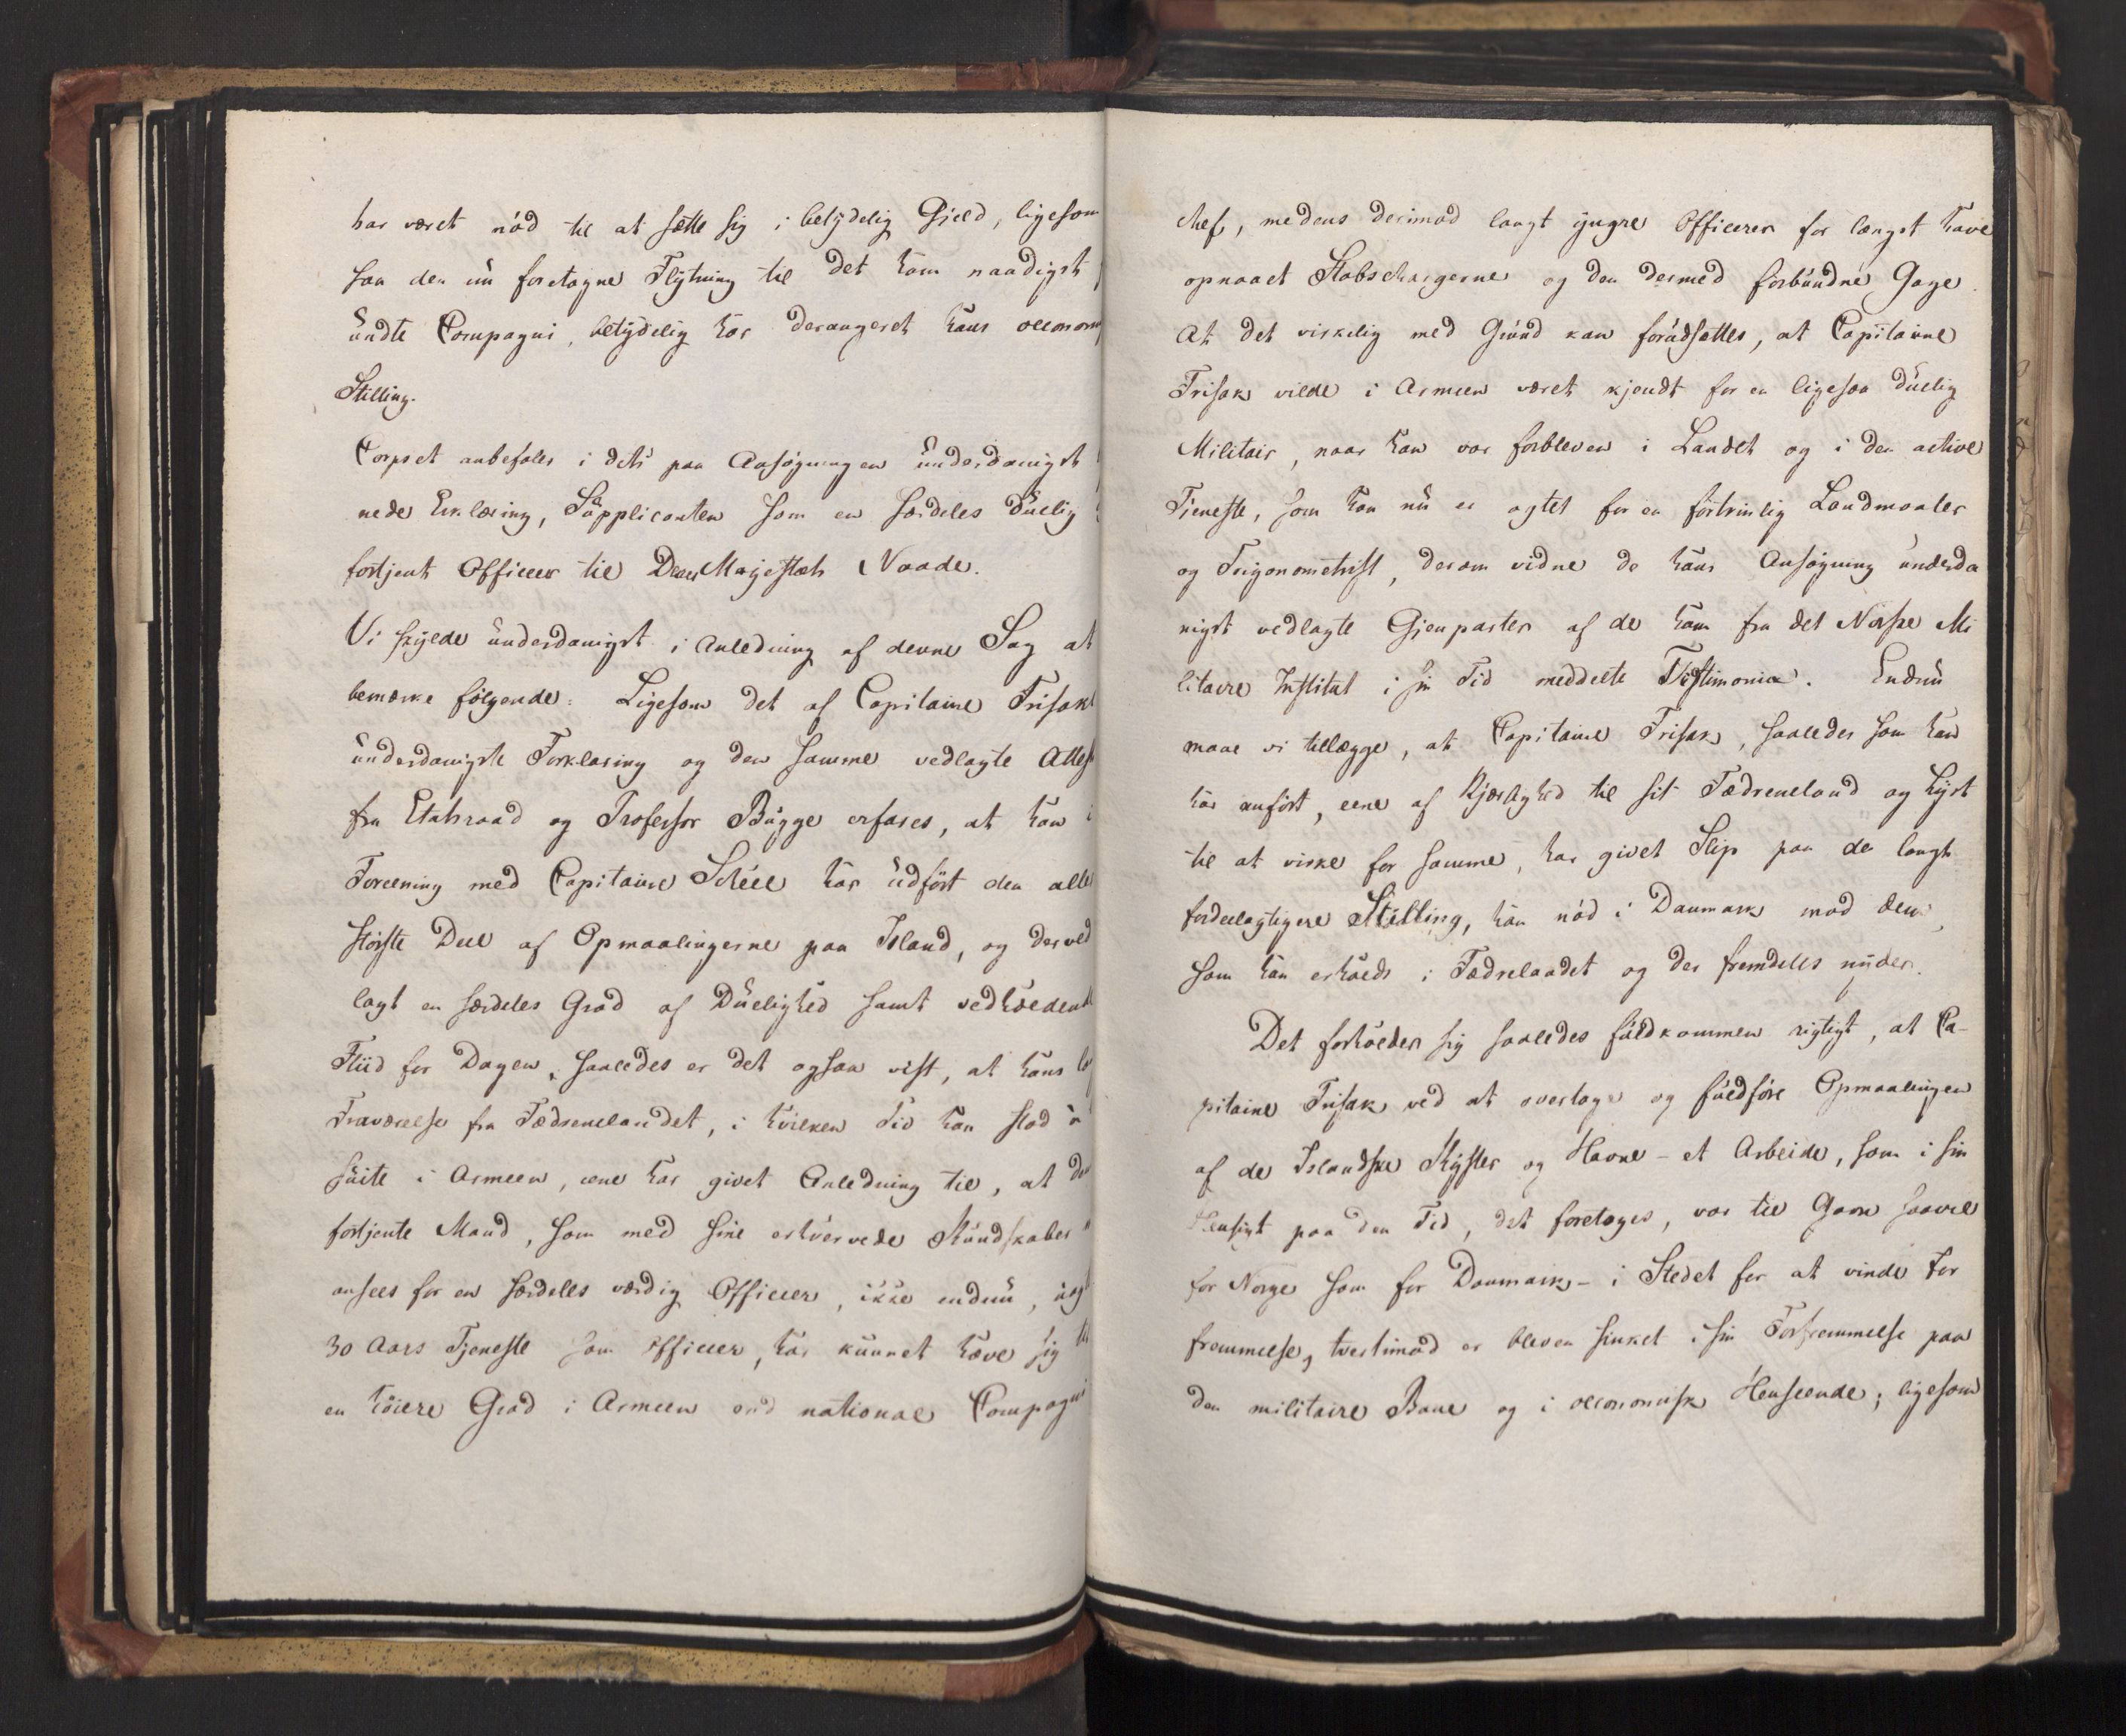 har været nød til at sætte sig i betydelig Gjæld, ligesom
saa den nu foretagne Flytning til det ham naadigst
undte Compagni, betydelig har derangeret hans oeconom
Stilling.
Corpset anbefaler i dets paa Ansøgningen underdanigst
nede Erklæring, Suppliconten som en særdeles duelig
fortjent Officeer til Deres Majestæts Naade.
Vi skulde underdanigst i Anledning af denne Sag at
bemærke følgende: Ligesom det af Capitaine Frisaks
underdanigste Forklaring og den samme vedlagte Attest
fra Etatsraad og Professor Bugge erfares, at han i
Foreening med Capitaine Scheel har udført den aller
største Deel af Opmaalingerne paa Island, og derved
lagt en særdeles Grad af Duelighed samt vedholdende
Fliid for Dagen, saaledes er det ogsaa vist, at hans
Fraværelse fra Fædrenelandet, i hvilken Tid han stod à
suite i Armeen, ene har givet Anledning til, at den
fortjente Mand, som med sine erhvervede Kundskaber
ansees for en særdeles værdig Officeer, ikke endnu,
30 Aars Tjeneste som Officeer, har kunnet hæve sig til
en høiere Grad i Armeen end national Compagni
chef, medens derimod langt yngre Officerer for længst have
opnaaet Stabschargerne og den dermed forbundne Gage.
At det virkelig med Grund kan forudsættes, at Capitaine
Frisak vilde i Armeen været kjendt for en ligesaa duelig
Militair, naar han var forbleven i Landet og i den active
Tieneste, som han nu er agtet for en fortrinlig Landmaaler
og Trigonometrist, derom vidne de hans Ansøgning underda
nigst vedlagte Gjenparter af de ham fra det Norske Mi
litaire Institut i sin Tid meddelte Testimonia. Endnu
maae vi tillægge, at Capitaine Frisak, saaledes som han
har anført, ene af Kjærlighed til sit Fædreneland og Lyst
til at virke for samme, har givet Slip paa de langt
fordeelagtigere Stilling, han nød i Danmark mod den,
som han erholdt i Fædrelandet og der fremdeles nyder.
Det forholder sig saaledes fuldkommen rigtigt, at Ca-
pitaine Frisak ved at overtage og fuldføre Opmaalingen
af de Islandske Kyster og Havne - et Arbeide, som i sin
Hensigt paa den Tid, det foretoges, var til Gavn saavel
for Norge som for Danmark - i Stedet for at vinde For
fremmelse, tvertimod er bleven sinket i sin Forfremmelse paa
den militaire Bane og i oeconomisk Henseende; ligesom